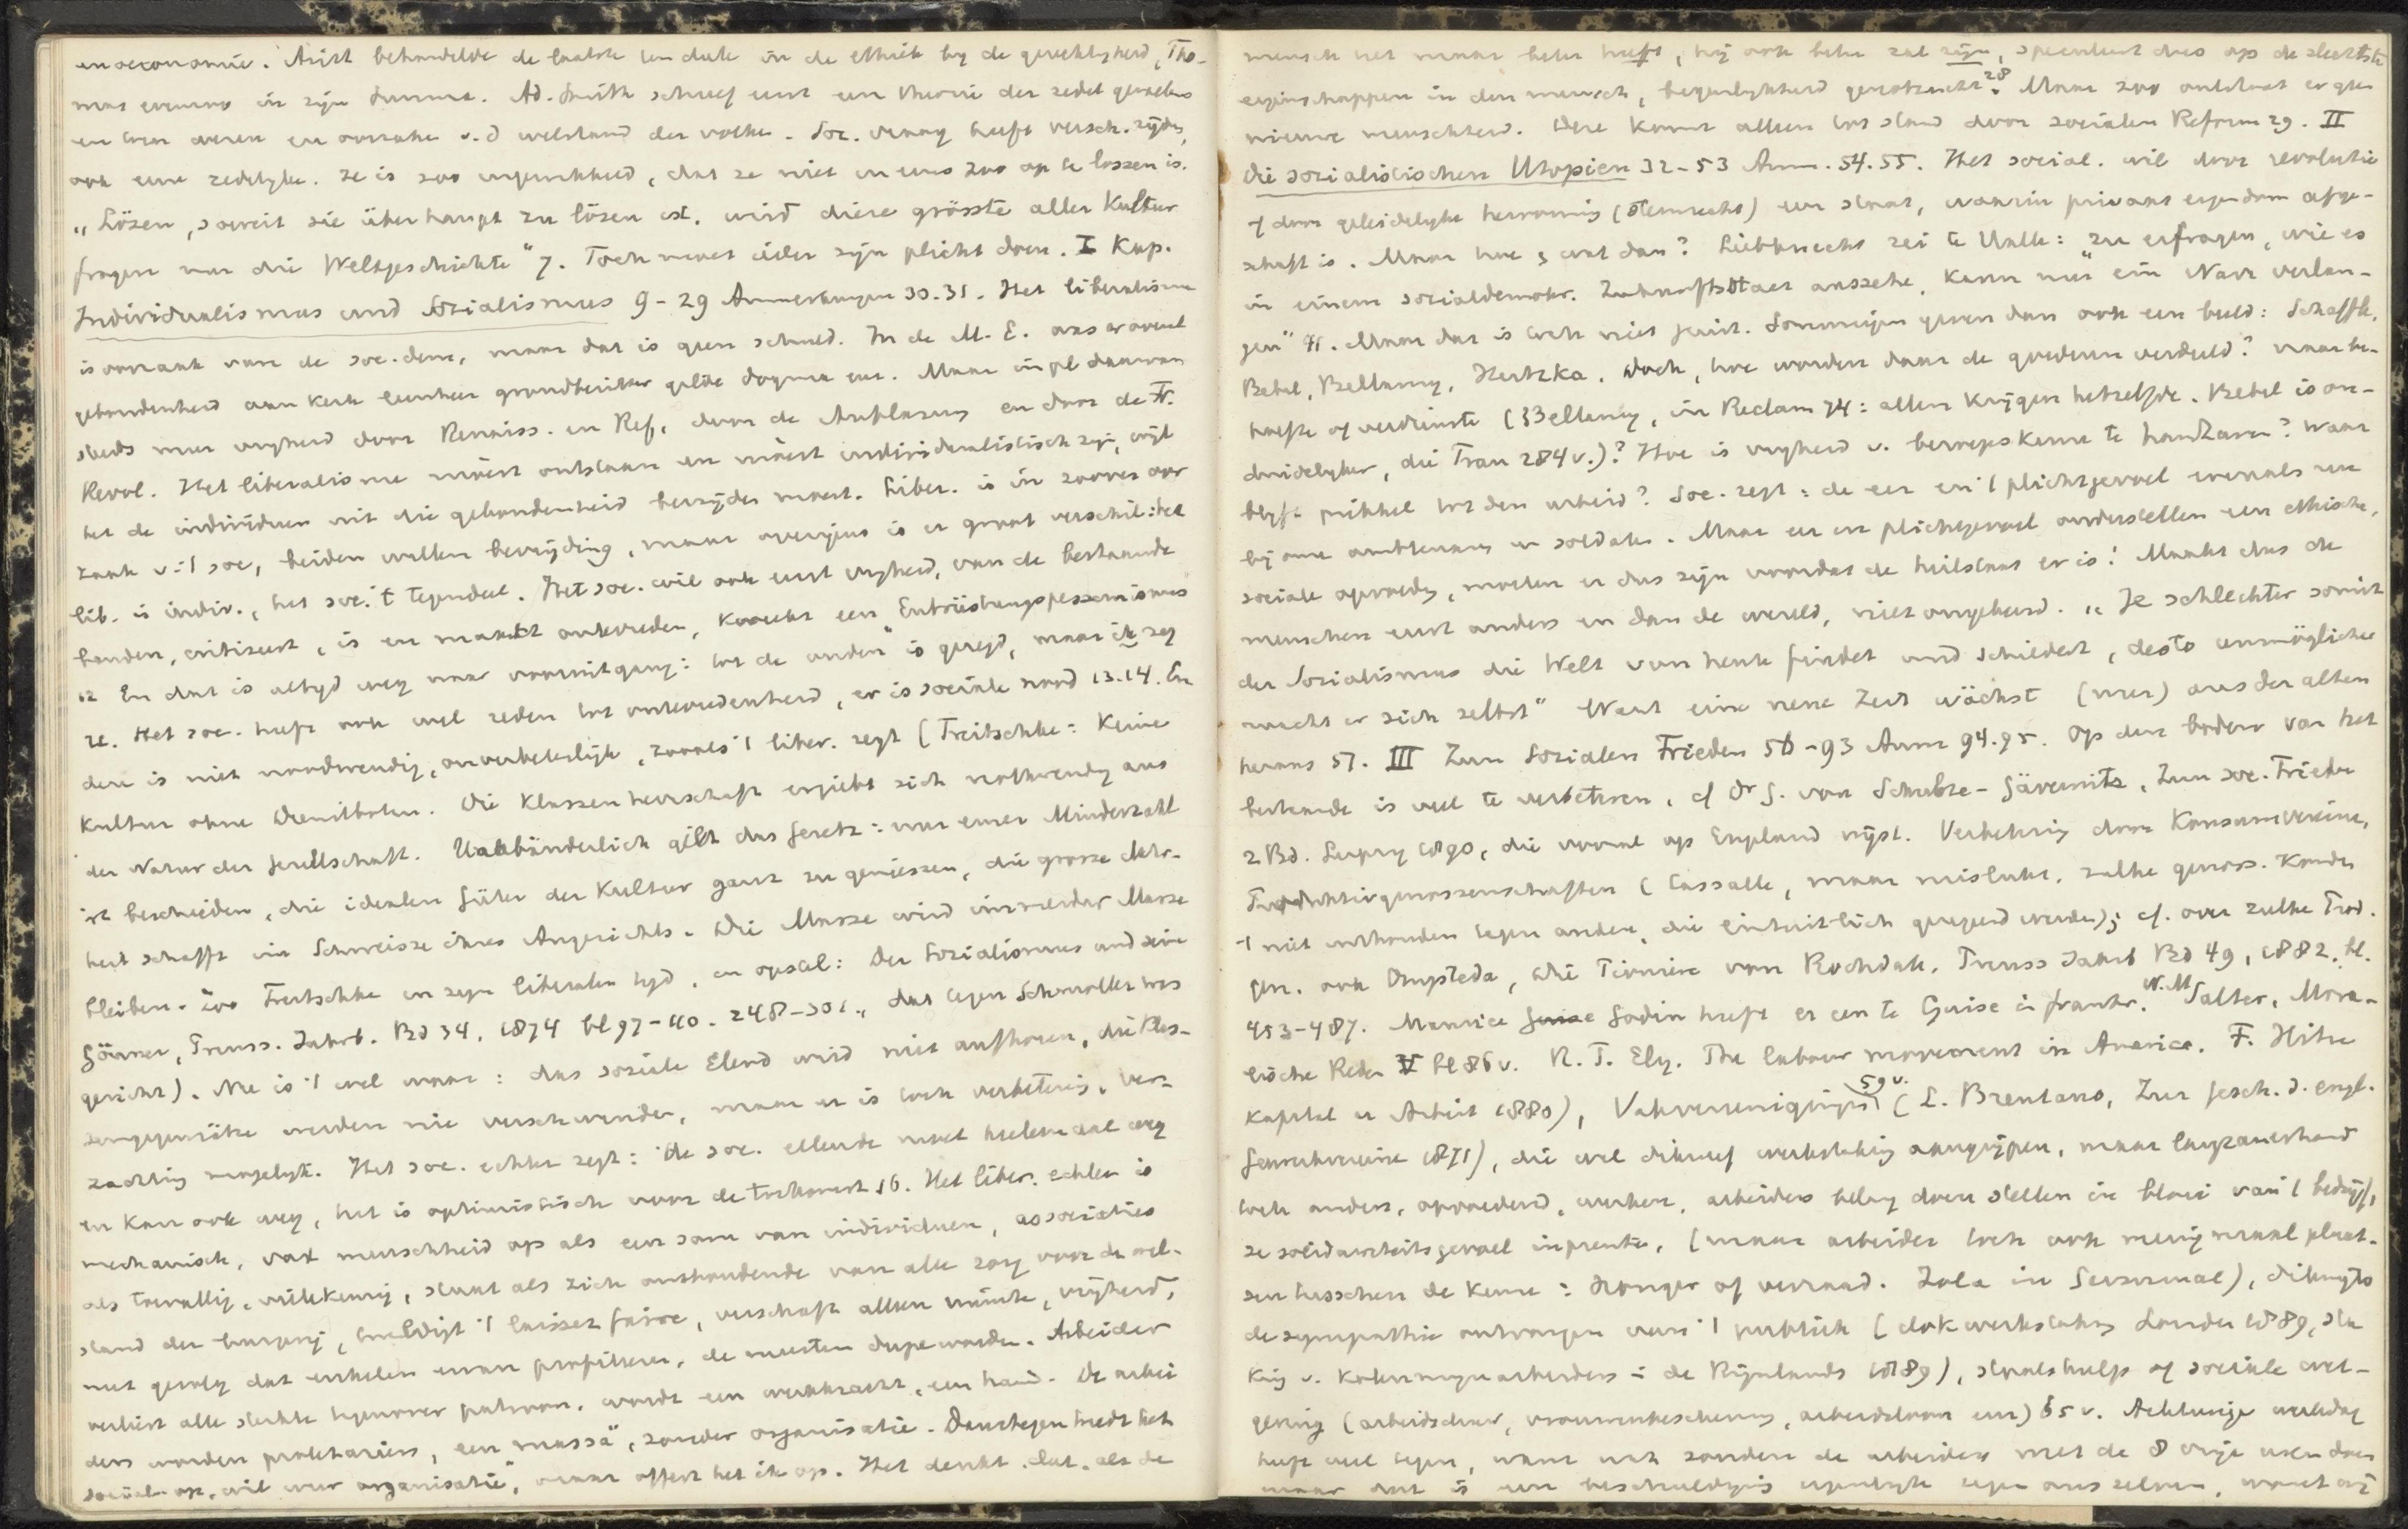 en oeconomie. Arist behandelde de laatste ten deele in de ethiek bij de gerechtigheid, Tho-
mas evenzoo in zijn Summa. Ad. Smith schreef eerst een theorie der zedel gevoelens
en toen over en oorzake v.d welstand der volke. Soc. vraag heeft versch. zijden,
ook eene zedelijke. Ze is zoo ingewikkeld, dat ze niet in eens zoo op te lossen is.
„Lösen, soweit sie überhaupt zu lösen ist, wird diese grösste aller Kultur
fragen nur die Weltgeschichte" 7. Toch moet ieder zijn plicht doen. I Kap.
Individualismus und Sozialismus 9-29 Anmerkungen 30.31. Het liberalisme
is oorzaak van de soc. dem, maar dat is geen schuld. In de M. E. was er overal
gebondenheid aan kerk leenheer grondbezitter gilde dogma enz. Maar in pl daarvan
steeds meer vrijheid door Renaiss. en Ref, door de Aufklärung en door de Fr.
Revol. Het liberalisme moest ontstaan en moest individualistisch zijn, wijl
het de individuen uit die gebondenheid bevrijden moest. Liber. is in zoover oor
zaak v. 't soc, beiden willen bevrijding, maar overigens is er groot verschil: het
lib. is indiv., het soc. 't tegendeel. Het soc. wil ook eerst vrijheid, van de bestaande
banden, critiseert, is en maakt ontevreden, kweekt een Entrüstungspessimismus
12 En dat is altijd weg naar vooruitgang: tot de ouden is gezegd, maar ik zeg
u. Het soc. heeft ook wel reden tot ontevredenheid, er is sociale nood 13.14. En
deze is niet noodwendig, onverbeterlijk, zooals 't liber. zegt (Treitschke: Keine
Kultur ohne Dienstboten. Die Klassenherrschaft ergiebt sich nothwendig aus
der Natur der Gesellschaft. Unabänderlich gilt das Gesetz: nur einer Minderzahl
ist beschieden, die idealen Güter der Kultur ganz zu geniessen, die grosse Mehr-
heit schafft im Schweisse ihres Angesichts. Die Masse wird immerdar Masse
bleiben. Zoo Treitschke in zijn liberalen tijd, in opstel: Der Sozialismus und seine
Gönner, Preuss. Jahrb. Bd 34, 1874 bl 97-110. 248-301, dat tegen Schmoller was
gericht). Nu is 't wel waar: das soziale Elend wird nie aufhören, die Klas-
sengegensätze werden nie verschwinden, maar er is toch verbetering, ver-
zachting mogelijk. Het soc. echter zegt: de soc. ellende moet heelemaal weg
en kan ook weg, het is optimistisch voor de toekomst 16. Het liber. echter is
mechanisch, vat menschheid op als een som van individuen, associaties
als toevallig, willekeurig, staat als zich onthoudende van alle zorg voor de wel-
stand der burgerij, huldigt 't laissez faire, verschaft allen ruimte, vrijheid,
met gevolg dat enkelen ervan profiteren, de meesten dupe worden. Arbeider
verliest alle steun tegenover patroon, wordt een werkkracht, een hand. De arbei
ders worden proletariers, een „massa", zonder organisatie. Daartegen treedt het
social. op, wil weer organisatie, maar offert het ik op. Het denkt, dat, als de
mensch het maar beter heeft, hij ook beter zal zijn, speculeert dus op de slechtste
eigenschappen in den mensch, begeerlijkheid genotzucht 28. Maar zoo ontstaat er geen
nieuwe menschheid. Deze komt alleen tot stand door socialen Reform 29. II
Die sozialistischen Utopien 32-53 Anm. 54.55. Het social. wil door revolutie
of door geleidelijke hervorming (stemrecht) een staat, waarin privaat eigendom afge-
schaft is. Maar hoe & wat dan? Liebknecht zei te Halle: zu erfragen, wie es
in einem socialdemokr. Zukunftstaat aussehe, kann nur ein Narr verlan-
gen" 41. Maar dat is toch niet juist. Sommigen geven dan ook een beeld: Schäffle,
Bebel, Bellamy, Hertzka. Doch, hoe worden daar de goederen verdeeld? naar be-
hoefte of verdienste (Bellamy, in Reclam 74: allen krijgen hetzelfde. Bebel is on-
duidelijker, die Frau 284 v.)? Hoe is vrijheid v. beroepskeuze te handhaven? Waar
blijft prikkel tot den arbeid? Soc. zegt: de eer en 't plichtgevoel evenals nu
bij onze ambtenaren en soldaten. Maar eer en plichtgevoel onderstellen een ethische,
sociale opvoeding, moeten er dus zijn voordat de heilstaat er is! Maakt dus de
menschen eerst anders en dan de wereld, niet omgekeerd. „Je schlechter somit
der Sozialismus die Welt von heute findet und schildert, desto unmöglicher
macht er sich selbst" Want eine neue Zeit wächst (nur) aus der alten
heraus 57. III Zum Sozialen Frieden 56-93 Anm 94.95. Op den bodem van het
bestaande is veel te verbeteren, cf Dr G. von Schulze-Gävernitz, Zum soc. Frieden
2 Bd. Leipzig 1890, die vooral op Engeland wijst. Verbetering door Konsumvereine,
Produktivgenossenschaften (Lassalle, maar mislukt, zulke genoss. konden
't niet uithouden tegen andere, die einheitlich geregeerd werden); cf. over zulke Prod.
gen. ook Ompteda, die Pioniere von Rochdale, Preuss Jahrb Bd 49, 1882, bl.
453-487. Maurice Godin heeft er een te Guise in frankr. W. M Salter, Mora-
lische Reden V bl 86 v. R. T. Ely. The labour movement in America. F. Hitze
Kapital u Arbeit 1880), Vakvereenigingen 59 v. (L. Brentano, Zur Gesch. d. engl.
Gewerkvereine 1871), die wel dikwijls werkstaking aangrijpen, maar langzamerhand
toch anders, opvoedend, werken, arbeiders belang doen stellen in bloei van 't bedrijf,
ze solidariteitsgevoel inprenten, (maar arbeider toch ook menigmaal plaat-
sen tusschen de keuze: honger of verraad. Zola in Germinal), dikwijls
de sympathie ontvangen van 't publiek (dokwerkstaking Londen 1889, sta
king v. kolenmijnarbeiders in de Rijnlands 1889), staatshulp of sociale wet-
geving (arbeidsduur, vrouwenbescherming, arbeidsloon enz) 65 v. Achturige werkdag
heeft veel tegen, want wat zouden de arbeiders met de 8 vrije uren doen
maar dat is een beschuldiging eigenlijk tegen ons zelven, want wij